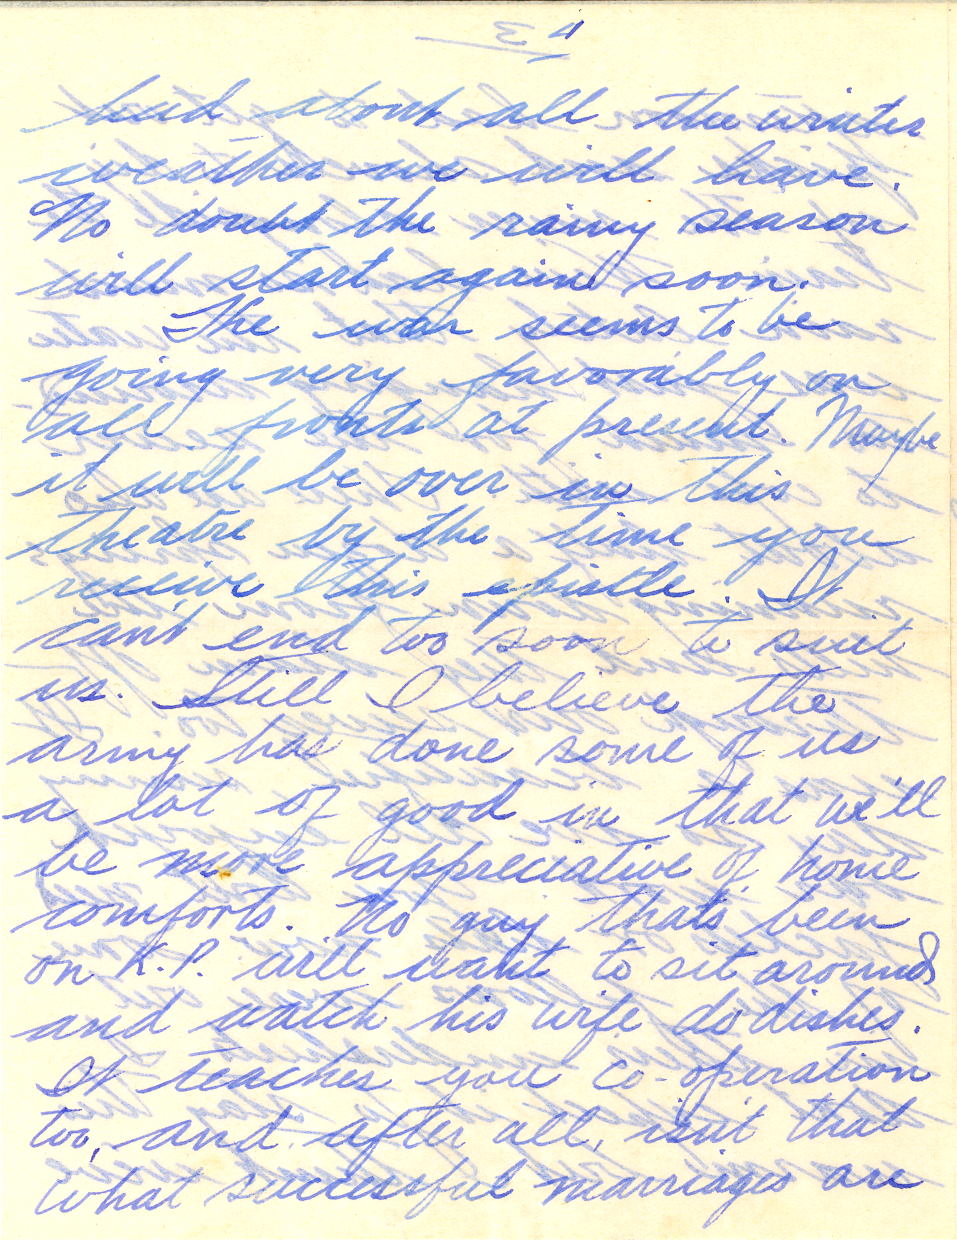 4
had about all the winter
weather we will have.
No doubt the rainy season
will start again soon.
The war seems to be
going very favorably on
all fronts at present. Maybe
it will be over in this
theatre by the time you
receive this epistle. It
can't end too soon to suit
us. Still I believe the
army has done some of us
a lot of good in that we'll
be more appreciative of home
comforts. No guy that's been
on K.P. will want to sit around
and watch his wife do dishes.
It teaches you co-operation
too, and after all, isn't that
what successful marriages are